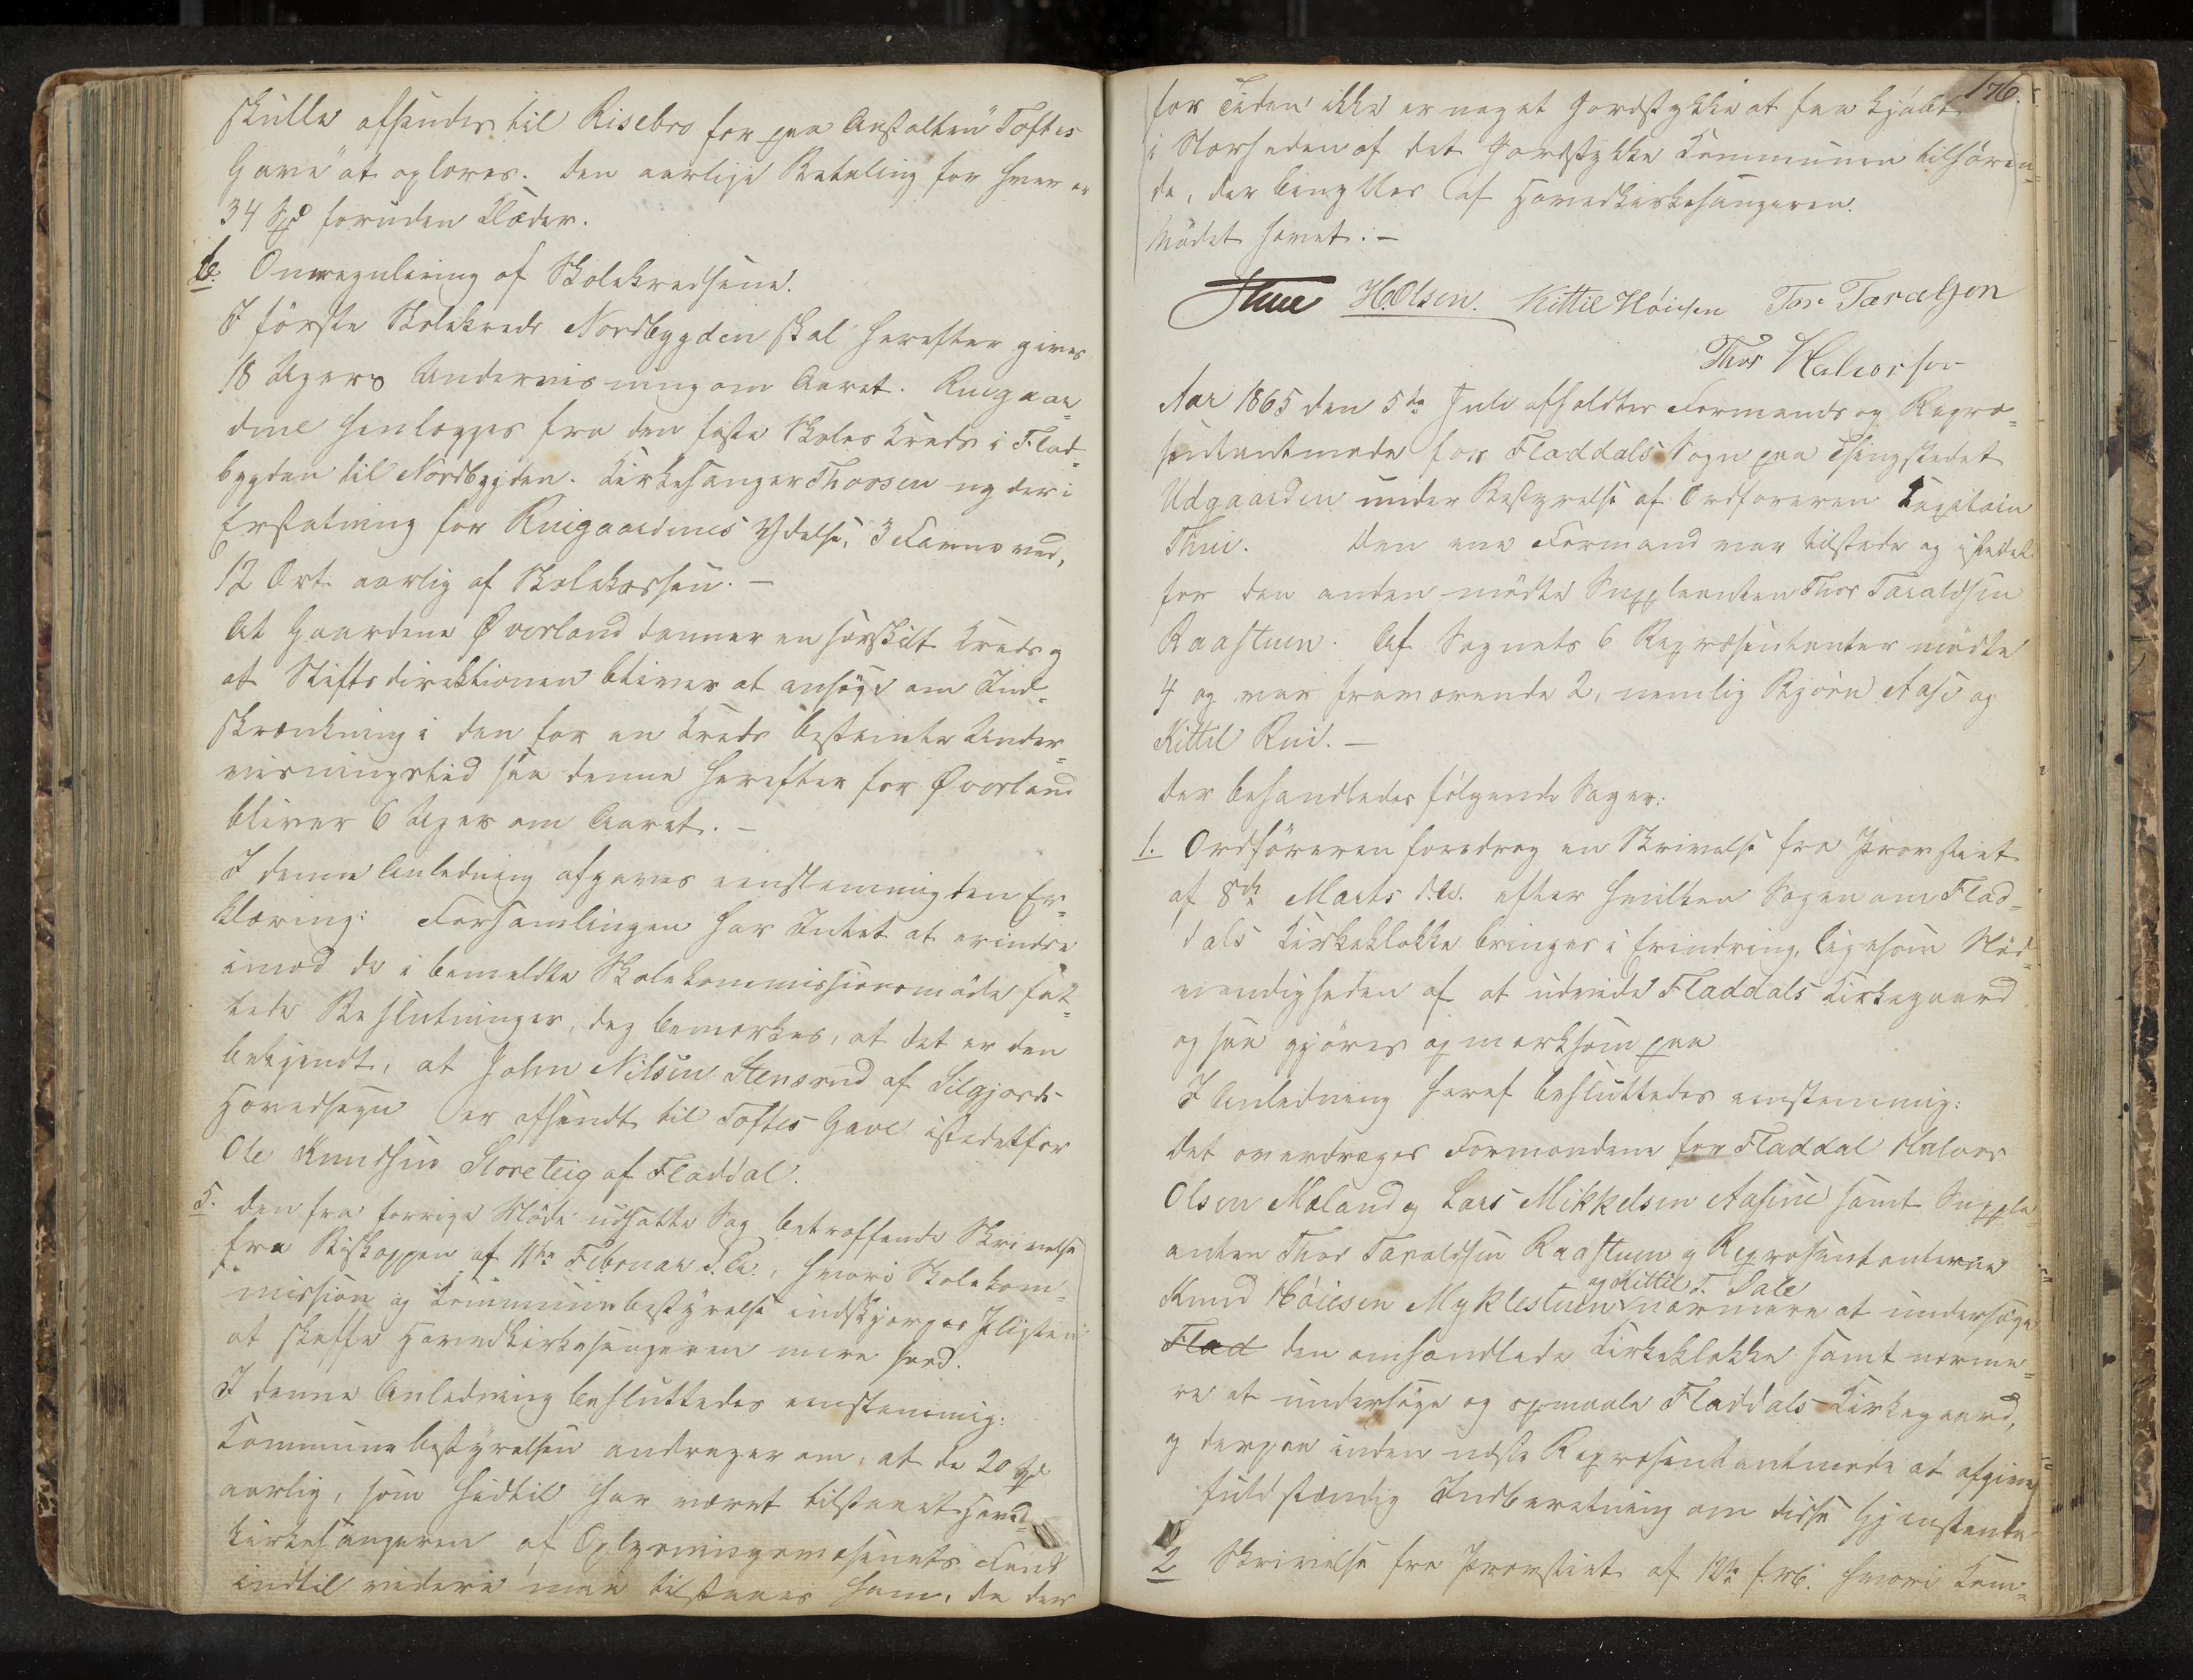 skulle afsendes til Risebro for paa Anstalten "Toftes
Gave" at oplæres. Den aarlige Betaling for hver er
34 Spd foruden Klæder.
b. Omregulering af Skolekredsene.
I første Skolekreds Nordbygden skal herefter gives
18 Ugers Underviisning om Aaret. Ruigaar=
dene henlægges fra den faste Skoles Kreds i Flad=
bygden til Nordbygden. Kirkesanger Thorsen nyder i
Erstatning for Ruigaardenes Ydelse, 3 Favne ved,
12 Ort aarlig af Skolekassen. —
At Gaardene Øverland danner en særskilt Kreds og
at Stiftsdirektionen bliver at ansøge om Ind=
skrænkning i den for en Kreds bestemte Under=
visningstid saa denne herefter for Øverland
bliver 6 Uger om Aaret. —
I denne Anledning afgaves eenstemmig den Er=
klæring: Forsamlingen har Intet at erindre
imod de i bemeldte Skolekommissionsmøde fat=
tede Beslutninger, dog bemærkes, at det er den
bekjendt, at John Nilsen Stensrud af Silgjords
Hovedsogn er afsendt til Toftes Gave istedetfor
Ole Knudsen Storeteig af Fladdal.
5. Den fra forrige Møde udsatte Sag betræffende Skrivelse
fra Biskoppen af 11te Februar d.A., hvori Skolekom=
mission og Kommunebestyrelse indskjærpes Pligten
at skaffe Hovedkirkesangeren mere Jord.
I denne Anledning besluttedes eenstemmig:
Kommunebestyrelsen andrager om, at de 20 Spd
aarlig, som hidtil har været tilstaaet Hoved=
kirkesangeren af Oplysningsvæsenets Fond
indtil videre maa tilstaaes ham, da der
176.
for Tiden ikke er noget Jordstykke at faa kjøbt
i Nærheden af det Jordstykke Kommunen tilhøren=
de, der benyttes af Hovedkirkesangeren.
Mødet hævet. —
Thue H.Olsen. Kittil Høiesen Tor Taraldsen
Thor Halvorsen
Aar 1865 den 5te Juli afholdtes Formands og Repræ=
sentantmøde for Fladdals Sogn paa Thingstedet
Udgaarden under Bestyrelse af Ordføreren Kapitain
Thue. Den ene Formand var tilstede og istedet
for den anden mødte Suppleanten Thor Taraldsen
Raastuen. Af Sognets 6 Repræsentanter mødte
4 og var fraværende 2, nemlig Bjørn Aase og
Kittil Rui. —
Der behandledes følgende Sager:
1. Ordføreren foredrog en Skrivelse fra Provstiet
af 8de Marts d.A. efter hvilken Sagen om Flad=
dals Kirkeklokke bringes i Erindring, ligesom Nød=
vendigheden af at udvide Fladdals Kirkegaard
ogsaa gjøres opmærksom paa
I Anledning heraf besluttedes eenstemmig:
Det overdrages Formændene for Fladdal Halvor
Olsen Mæland og Lars Mikkelsen Aasene samt Supple=
anten Thor Taraldsen Raastuen og Repræsentanterne
og Kittil T. Dale
Knud Høiesen Myklestuen nærmere at undersøge
Flad den omhandlede Kirkeklokke samt nærme=
re at undersøge og opmaale Fladdals Kirkegaard,
og derpaa inden næste Repræsentantmøde at afgive
fuldstændig Indberetning om disse Gjenstande
2 Skrivelse fra Provstiet af 12te hvori Kom=